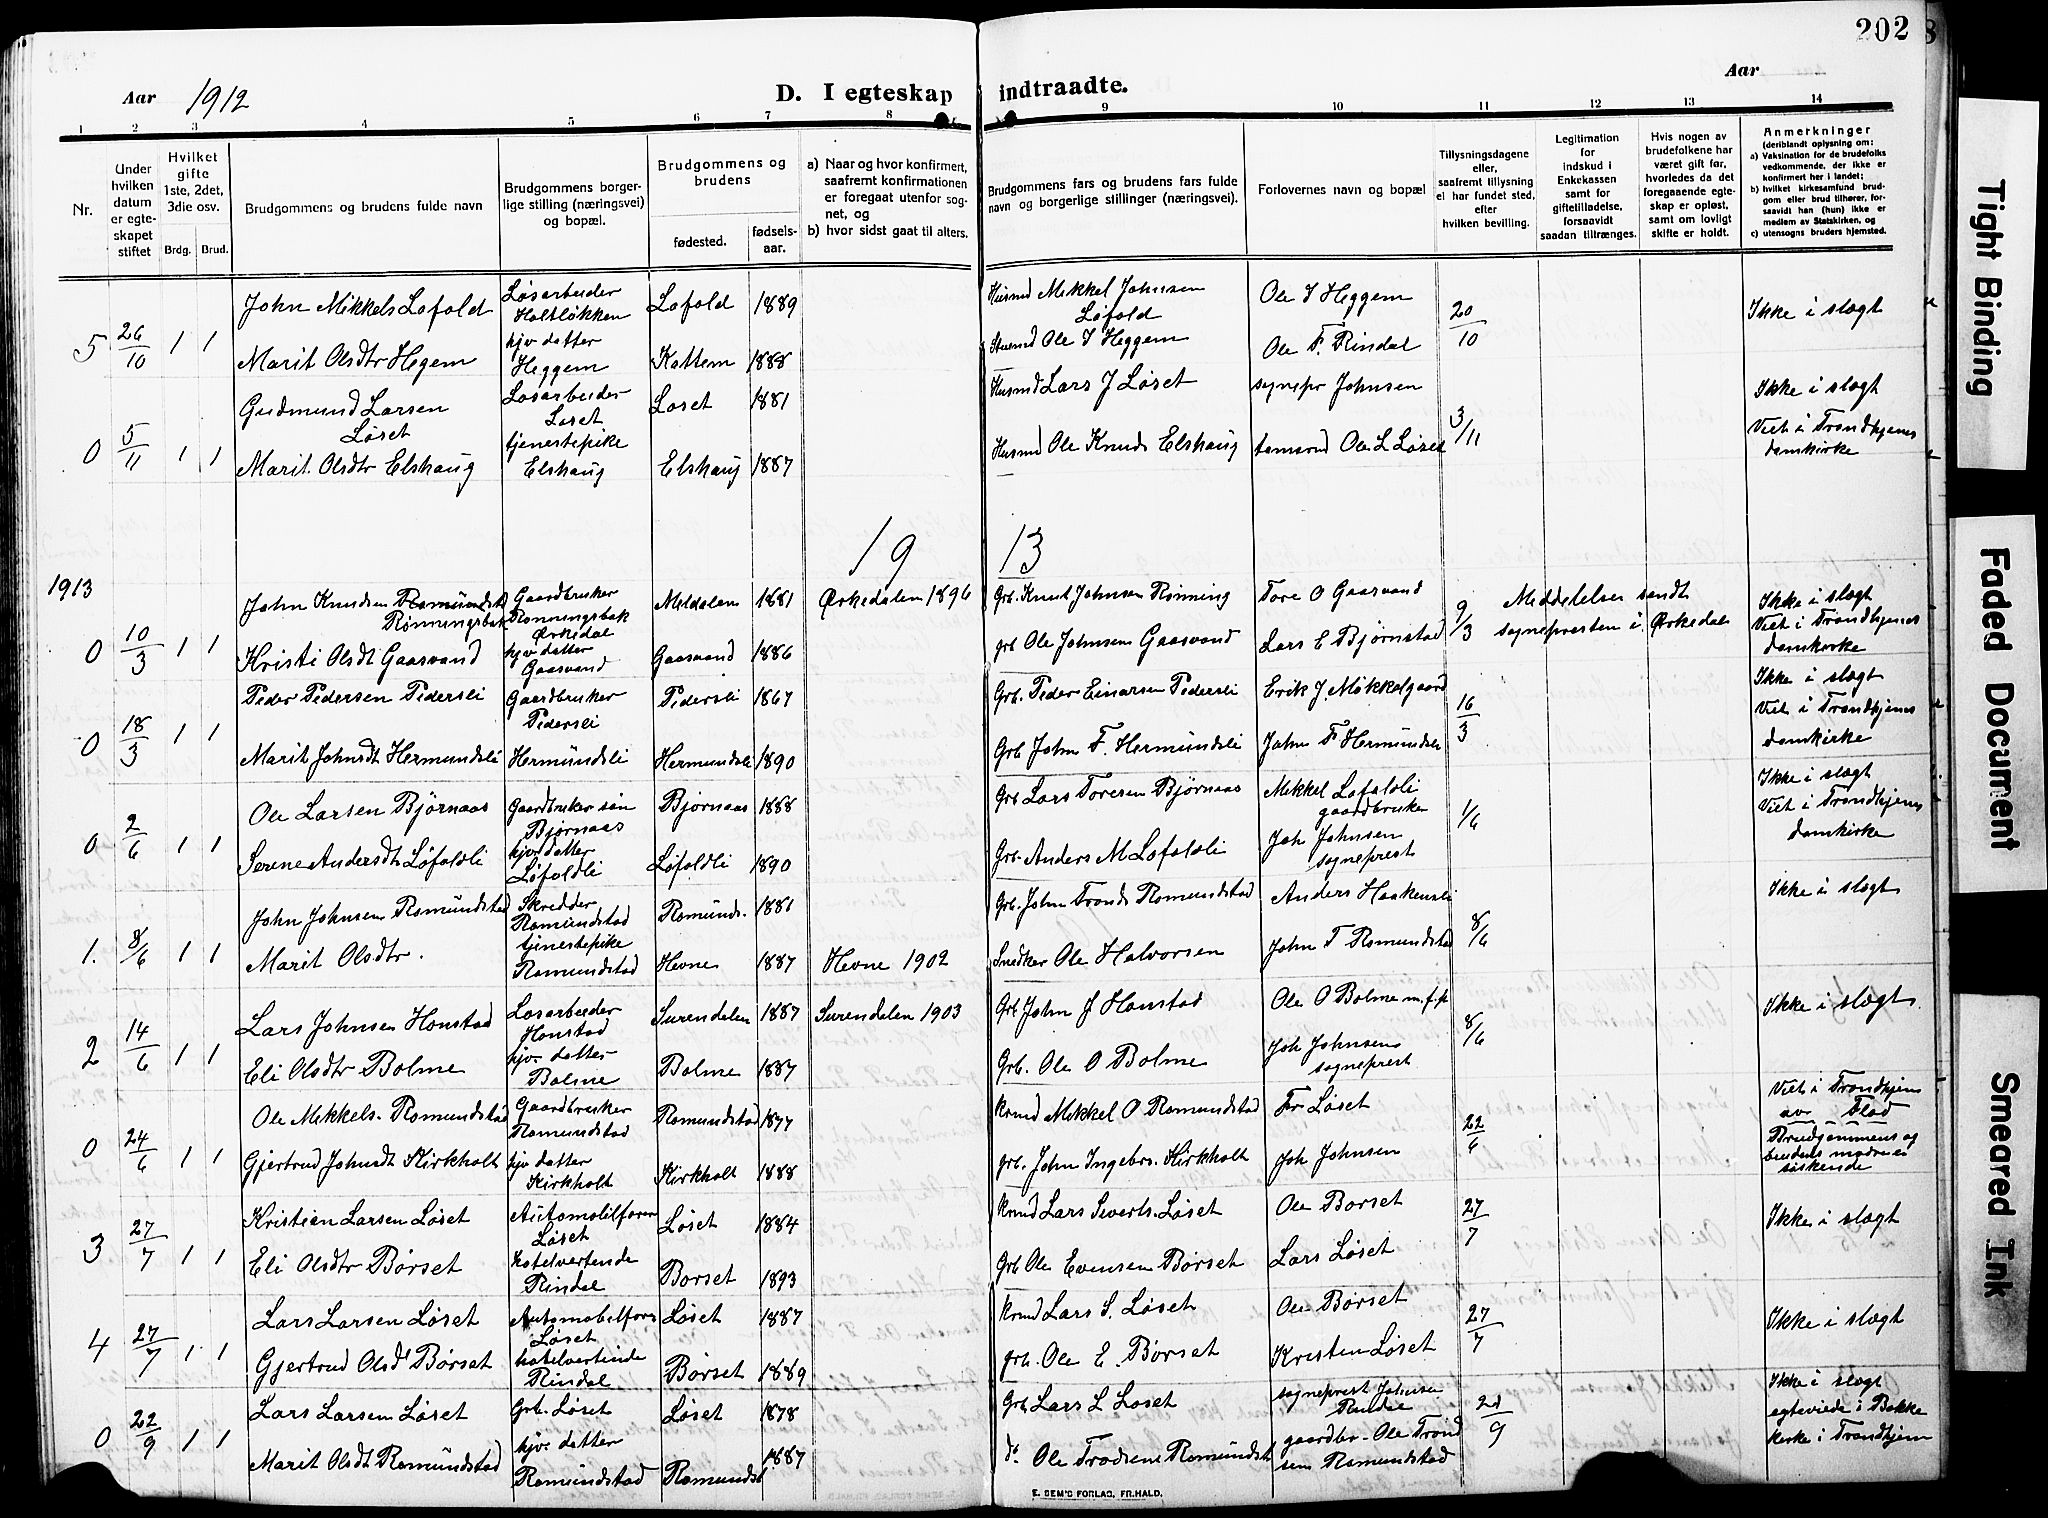 202
Aar 1912
D. I egteskap indtraadte.
Aar
1 2 3 4 5 6 7 8 9 10 11 12 13 14
Nr.
Under hvilken datum er egteskapet stiftet
Hvilket gifte 1ste, 2det, 3die osv.
Brdg. Brud.
Brudgommens og brudens fulde navn
Brudgommens borgerlige stilling (næringsvei) og bopæl.
Brudgommens og brudens
fødested.
fødselsaar.
a) Naar og hvor konfirmert, saafremt konfirmationen er foregaat utenfor sognet, og
b) hvor sidst gaat til alters.
Brudgommens fars og brudens fars fulde navn og borgerlige stillinger (næringsvei).
Forlovernes navn og bopæl
Tillysningsdagene eller, saafremt tillysning ei har fundet sted, efter hvilken bevilling.
Legitimation for indskud i Enkekassen samt for giftetilladelse, forsaavidt saadan tiltrænges.
Hvis nogen av brudefolkene har været gift før, hvorledes da det foregaaende egteskap er opløst, samt om lovligt skifte er holdt.
Anmerkninger (deriblandt oplysning om:
a) Vaksination for de brudefolks vedkommende, der ikke er konfirmert her i landet;
b) hvilket kirkesamfund brudgom eller brud tilhører, forsaavidt han (hun) ikke er medlem av Statskirken, og
c) utensogns bruders hjemsted.
5 26/10 1 1 John Mikkels Lofold Løsarbeider Holtløkken Lofold 1889 Husmd Mikkel Johnsen Løfold Ole I Heggem 20/10 Ikke i slægt
Marit Olsdtr Hegem hjv datter Heggem Kattem 1888 Ole I Heggem Ole F. Rindal
0 5/11 1 1 Gudmund Larsen Løset Løsarbeider Løset Løset 1881 Husmd Lars J Løset sognepr Johnsen 3/11 Ikke i slægt
Viet i Trondhjems domkirke
Marit Olsdtr Elshaug tjenestepike Elshaug Elshaug 1887 Husmd Ole Knuds Elshaug Ole L Løset
19 13
1913
0 10/3 1 1 John Knudsen Romundstad Rønningsbak Gaardbruker Rønningsbak Ørkedal Meldalen 1881 Ørkedalen 1896 Grb. Knut Johnsen Rønning Tore O Gaasvand 9/3 Meddelelse sendt sognepresten i Ørkedal Ikke i slægt
Viet i Trondhjems domkirke
Kristi Olsdt Gaasvand hjv datter Gaasvand Gaasvand 1886 grb Ole Johnsen Gaasvand Lars E Bjørnstad
0 18/3 1 1 Peder Pedersen Pedersli Gaardbruker Pedersli Pedersli 1867 Grb. Peder Einarsen Pedersli Erik J. Mikkelgaard 16/3 Ikke i slægt
Viet i Trondhjems domkirke
Marit Johnsdt Hermundsli Hermundsli Hermundsli 1890 Grb John F. Hermundsli John F Hermundsli
0 2/6 1 1 Ole Larsen Bjørnaas Gaardbruker søn Bjørnaas Bjørnaas 1888 Grb Lars Toresen Bjørnaas Mikkel Lofoldli gaardbruker 1/6 Ikke i slægt
Viet i Trondhjems domkirke
Serene Andersdt Løfoldli hjv datter Løfoldli Løfoldli 1890 Grb. Anders M Lofoldli Joh Johnsen sogneprest
1. 8/6 1 1 John Johnsen Romundstad Skredder Romundstad Romunds. 1881 Grb. John Tronds Romundstad Anders Haakensli 8/6 Ikke i slægt
Marit Olsdtr. tjenestepike Romundstad Hevne 1887 Hevne 1902 Snedker Ole Halvorsen John T Romundstad
2 14/6 1 1 Lars Johnsen Honstad Løsarbeider Honstad Surendalen 1887 Surendalen 1903 Grb John J Honstad Ole O Bolme m.f.p 8/6 Ikke i slægt
Eli Olsdtr Bolme hjv. datter Bolme Bolme 1887 Grb. Ole O Bolme Joh Johnsen sogneprest
0 24/6 1 1 Ole Mikkels. Romundstad Gaardbruker Romundstad Romundstad 1877 Mikkel O Romundstad Fr Løset 22/6 Viet i Trondhjem av Flod
Brudgommens og brudens mødre er søskende
Gjertrud Johnsdt Kirkholt hjv datter Kirkholt Kirkholt 1888 grb. John Ingebr. Kirkholt Joh Johnsen
3 27/7 1 1 Kristian Larsen Løset Automobilfører Løset Løset 1884 Lars Siverts. Løset Ole Borset 27/7 Ikke i slægt
Eli Olsdtr Børset hotelvertinde Rindal Borset 1893 Grb Ole Evensen Børset Lars Løset
4 27/7 1 1 Lars Larsen Løset Automobilfører Løset Løset 1887 Lars S. Løset Ole Børset 27/7 Ikke i slægt
Gjertrud Olsd Børset hotelvertinde Rindal Børset 1889 grb. Ole E. Børset Kristen Løset
0 22/9 1 1 Lars Larsen Løset Grb. Løset Løset 1878 Grb Lars L Løset sogneprest Johnsen Rindal 21/9 Ikke i slægt
egteviede i Bakke kirke i Trondhjem
Marit Olsdt Romundstad hjv. datter Romundstad Romundst 1887 Ole Trondsen Romundst gaardbr. Ole Trondsen Romundstad
E. SEM'S FORLAG, FR.HALD.
Tight Binding
Faded Document
Smeared Ink